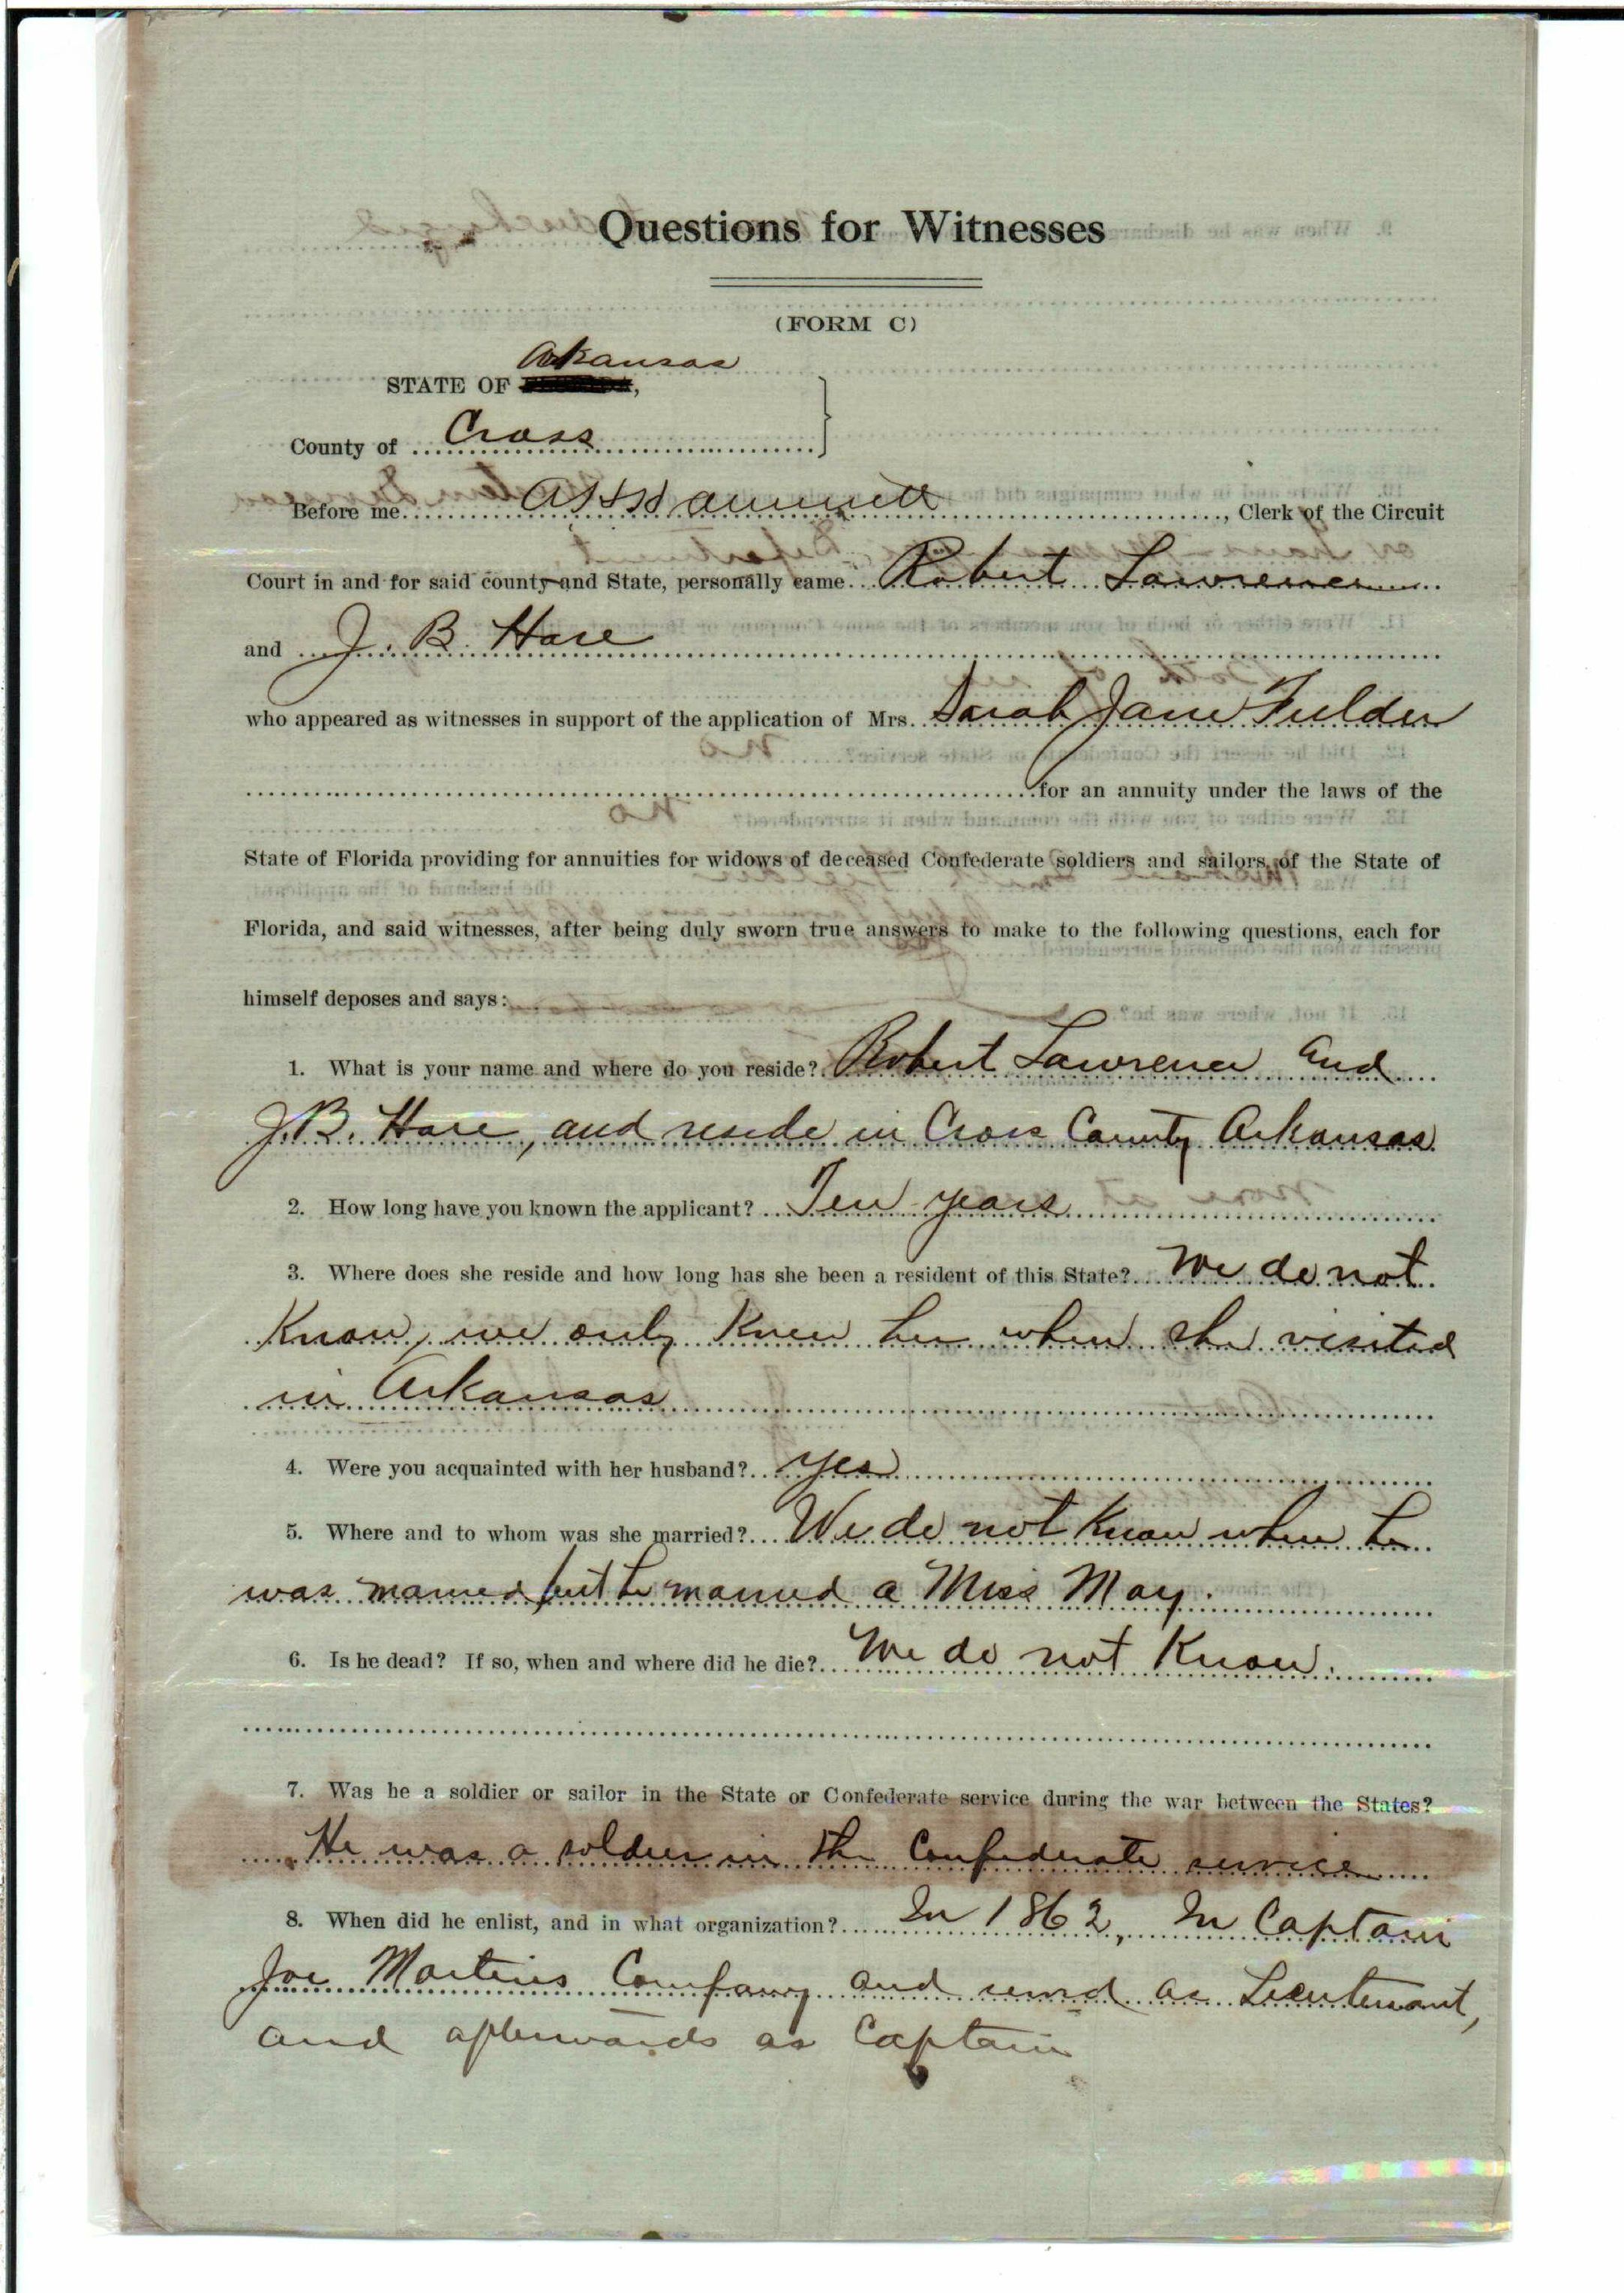 Questions for Witnesses
(FORM C)
Arkansas
STATE OF
County of Cross
Before me , Clerk of the Circuit
Court in and for said county and State, personally came Robert Lawrence
and J. B. Hare
who appeared as witnesses in support of the application of Mrs. Sarah Jane Fielder
for an annuity under the laws of the
State of Florida providing for annuities for widows of deceased Confederate soldiers and sailors of the State of
Florida, and said witnesses, after being duly sworn true answers to make to the following questions, each for
himself deposes and says:
1. What is your name and where do you reside? Robert Lawrence and
J.B. Hare, and reside in Cross County Arkansas.
2. How long have you known the applicant? Ten years
3. Where does she reside and how long has she been a resident of this State? We do not
Know, we only Knew her when she visited
in Arkansas
4. Were you acquainted with her husband? yes
5. Where and to whom was she married? We do not Know when he
was married but he married a Miss May.
6. Is he dead? If so, when and where did he die? We do not Know.
7. Was he a soldier or sailor in the State or Confederate service during the war between the States?
He was a soldier in the Confederate service
8. When did he enlist, and in what organization? In 1862, In Captain
Joe Martins Company and served as Lieutenant,
and afterwards as Captain